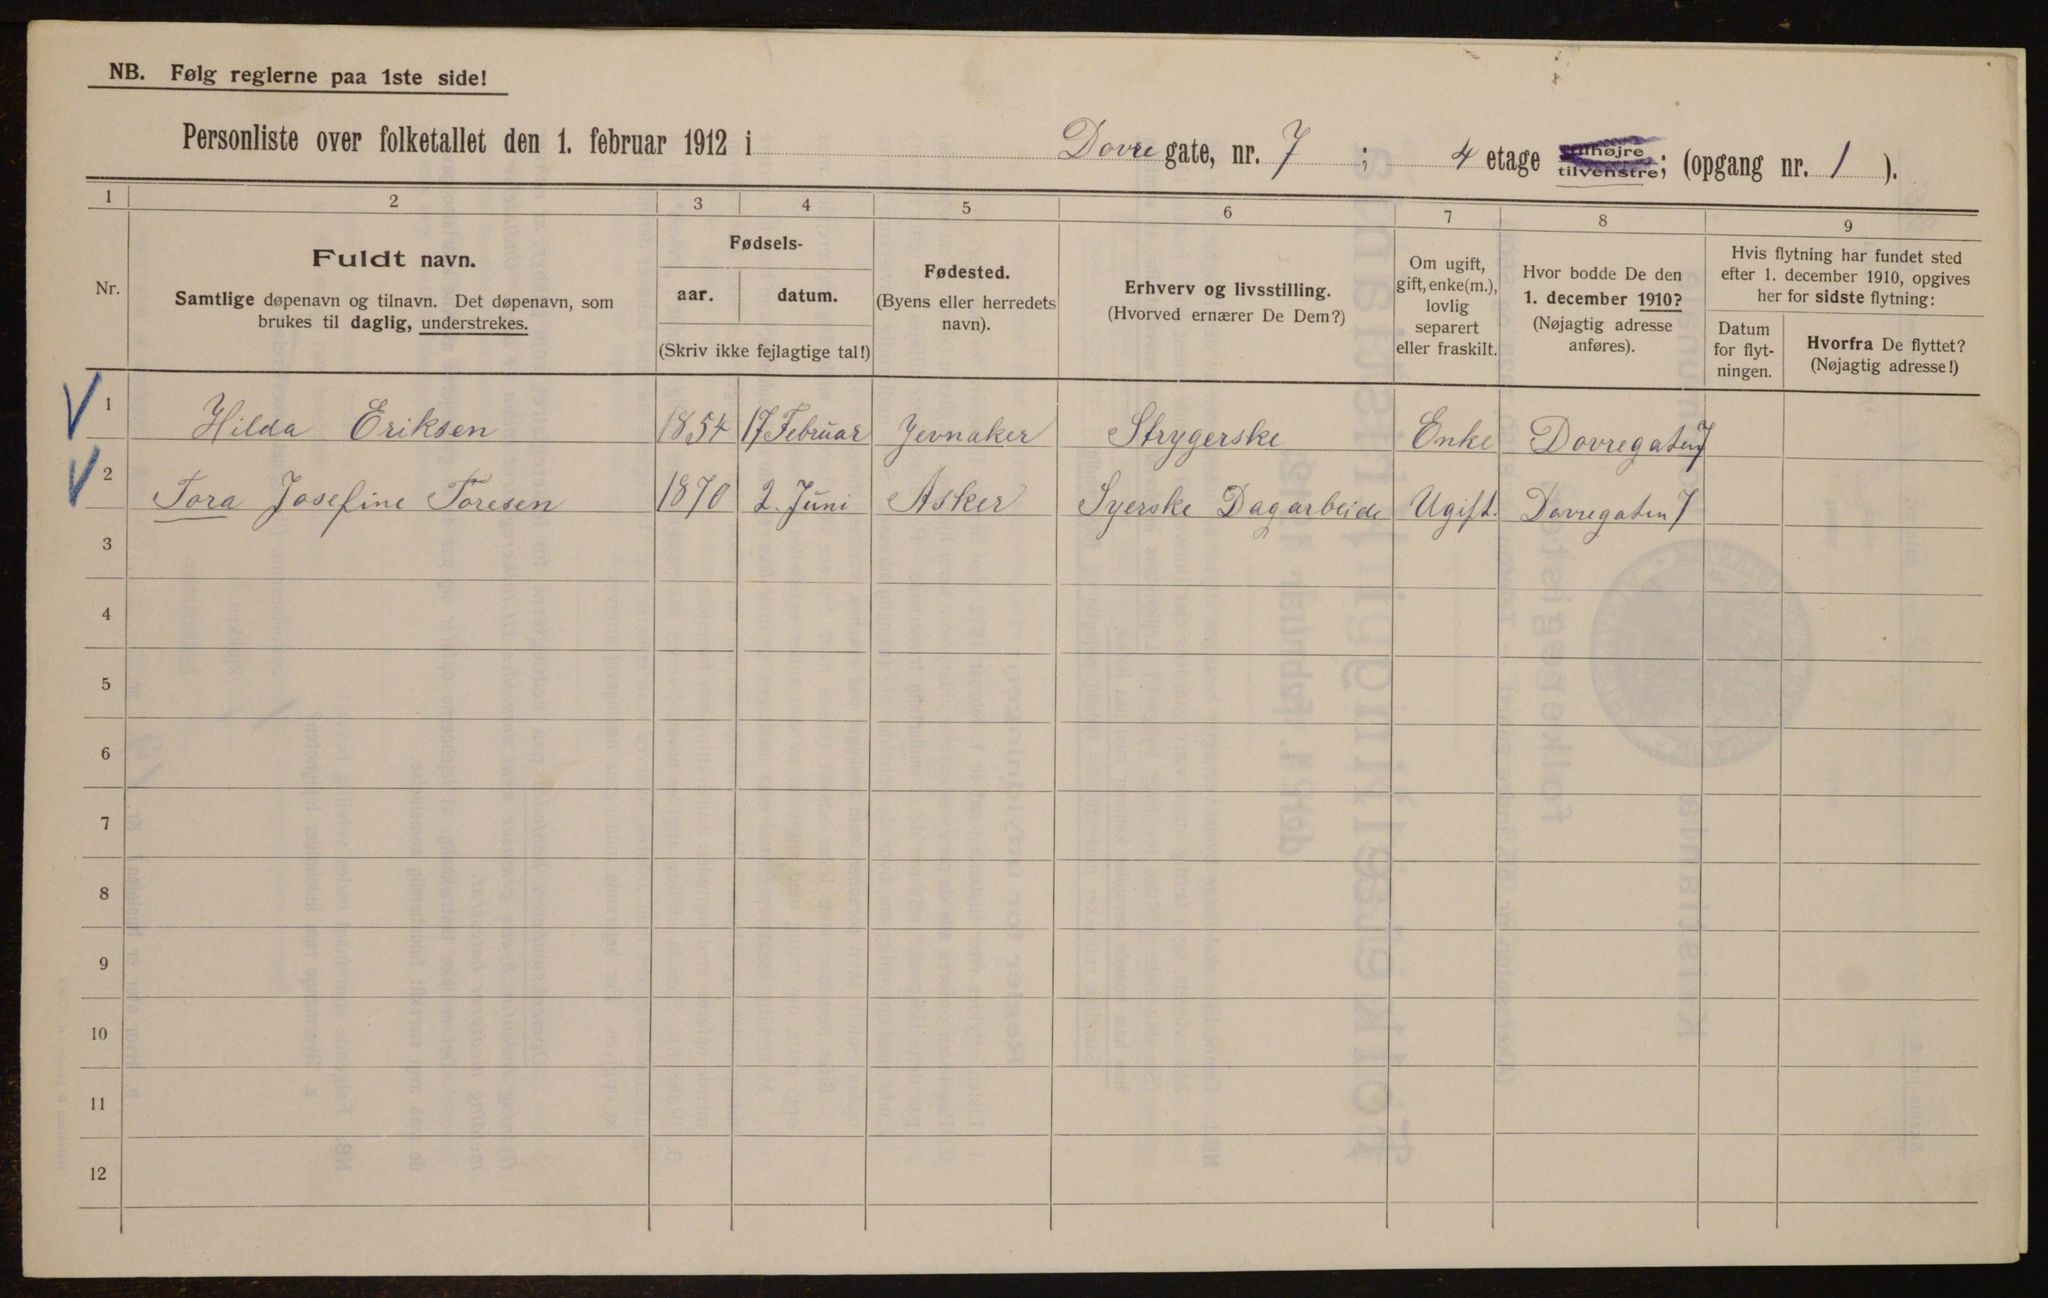 NB. Følg reglerne paa 1ste side!
Personliste over folketallet den 1. februar 1912 i Dovre gate, nr. 7 ; 4 etage tilhøjre tilvenstre; (opgang nr. 1 ).
1 2 3 4 5 6 7 8 9
Nr.
Fuldt navn.
Samtlige døpenavn og tilnavn. Det døpenavn, som
brukes til daglig, understrekes.
Fødsels-
aar. datum.
(Skriv ikke fejlagtige tal!)
Fødested.
(Byens eller herredets
navn).
Erhverv og livsstilling.
(Hvorved ernærer De Dem?)
Om ugift,
gift, enke(m.),
lovlig
separert
eller fraskilt.
Hvor bodde De den
1. december 1910?
(Nøjagtig adresse
anføres).
Hvis flytning har fundet sted
efter 1. december 1910, opgives
her for sidste flytning:
Datum
for flyt-
ningen.
Hvorfra De flyttet?
(Nøjagtig adresse!)
1 Hilda Eriksen 1854 17 Februar Jevnaker Strygerske Enke Dovregaten 7
2 Tora Josefine Toresen 1870 2. Juni Asker Syerske Dagarbeide Ugift. Dovregaten 7
3
4
5
6
7
8
9
10
11
12